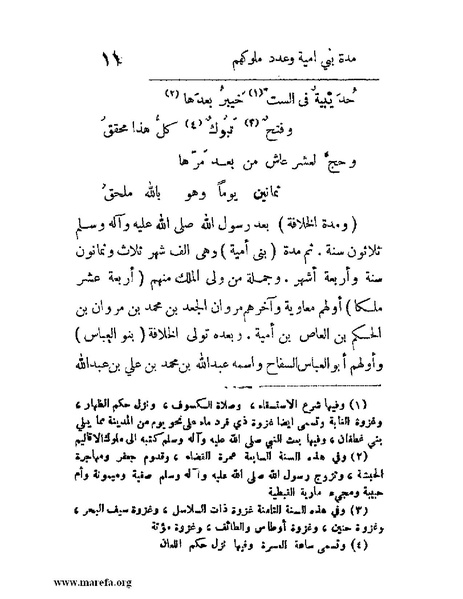 مدة بني امية وعدد ملوكهم ١١
حُديبيةٌ فى الست (١) خيبرُ بعدها (٢)
وفتحٌ (٣) تبوكٌ (٤) كلُّ هذا محققُ
وحجٌّ لعشر عاش من بعد مَرّها
ثمانين يوماً وهو بالله ملحقُ
( ومدة الخلافة ) بعد رسول الله صلى الله عليه وآله وسلم
ثلاثون سنة . ثم مدة ( بنى أمية ) وهى الف شهر ثلاث وثمانون
سنة وأربعة أشهر . وجملة من ولى الملك منهم ( أربعة عشر
ملكا ) أولهم معاوية وآخرهم مروان الجعد بن محمد بن مروان بن
الحكم بن العاص بن أمية . وبعده تولى الخلافة ( بنو العباس )
وأولهم أبو العباس السفاح واسمه عبدالله بن محمد بن علي بن عبدالله
(١) وفيها شرع الاستسقاء ، وصلاة الكسوف ، ونزل حكم الظهار ،
وغزوة الغابة وتسمى ايضا غزوة ذي قرد ماء على نحو يوم من المدينة مما يلي
بني غطفان ، وفيها بعث النبي صلى الله عليه وآله وسلم كتبه الى ملوك الاقاليم
(٢) وفي هذه السنة السابعة عمرة القضاء ، وقدوم جعفر ومهاجرة
الحبشة ، وتزوج رسول الله صلى الله عليه وآله وسلم صفية وميمونة وأم
حبيبة ومجيء مارية القبطية
(٣) وفي هذه السنة الثامنة غزوة ذات السلاسل ، وغزوة سيف البحر ،
وغزوة حنين ، وغزوة أوطاس والطائف ، وغزوة مؤتة
(٤) وتسمى ساعة العسرة وفيها نزل حكم اللعان
www.marefa.org